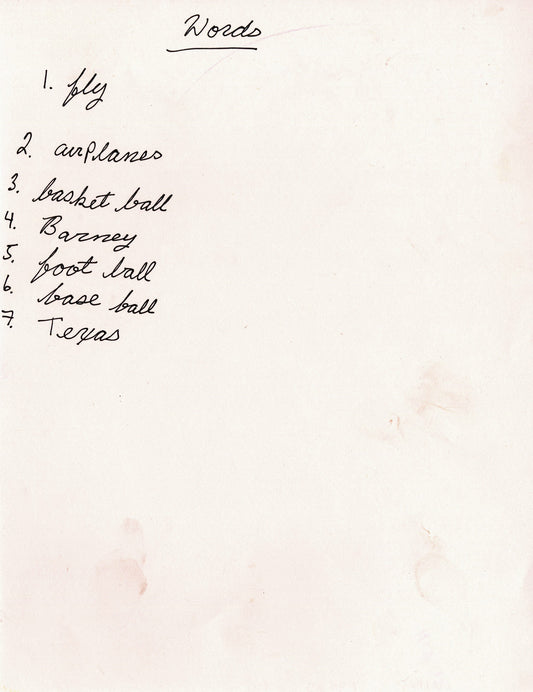 Words
1. fly
2. airplanes
3. basket ball
4. Barney
5. foot ball
6. base ball
7. Texas